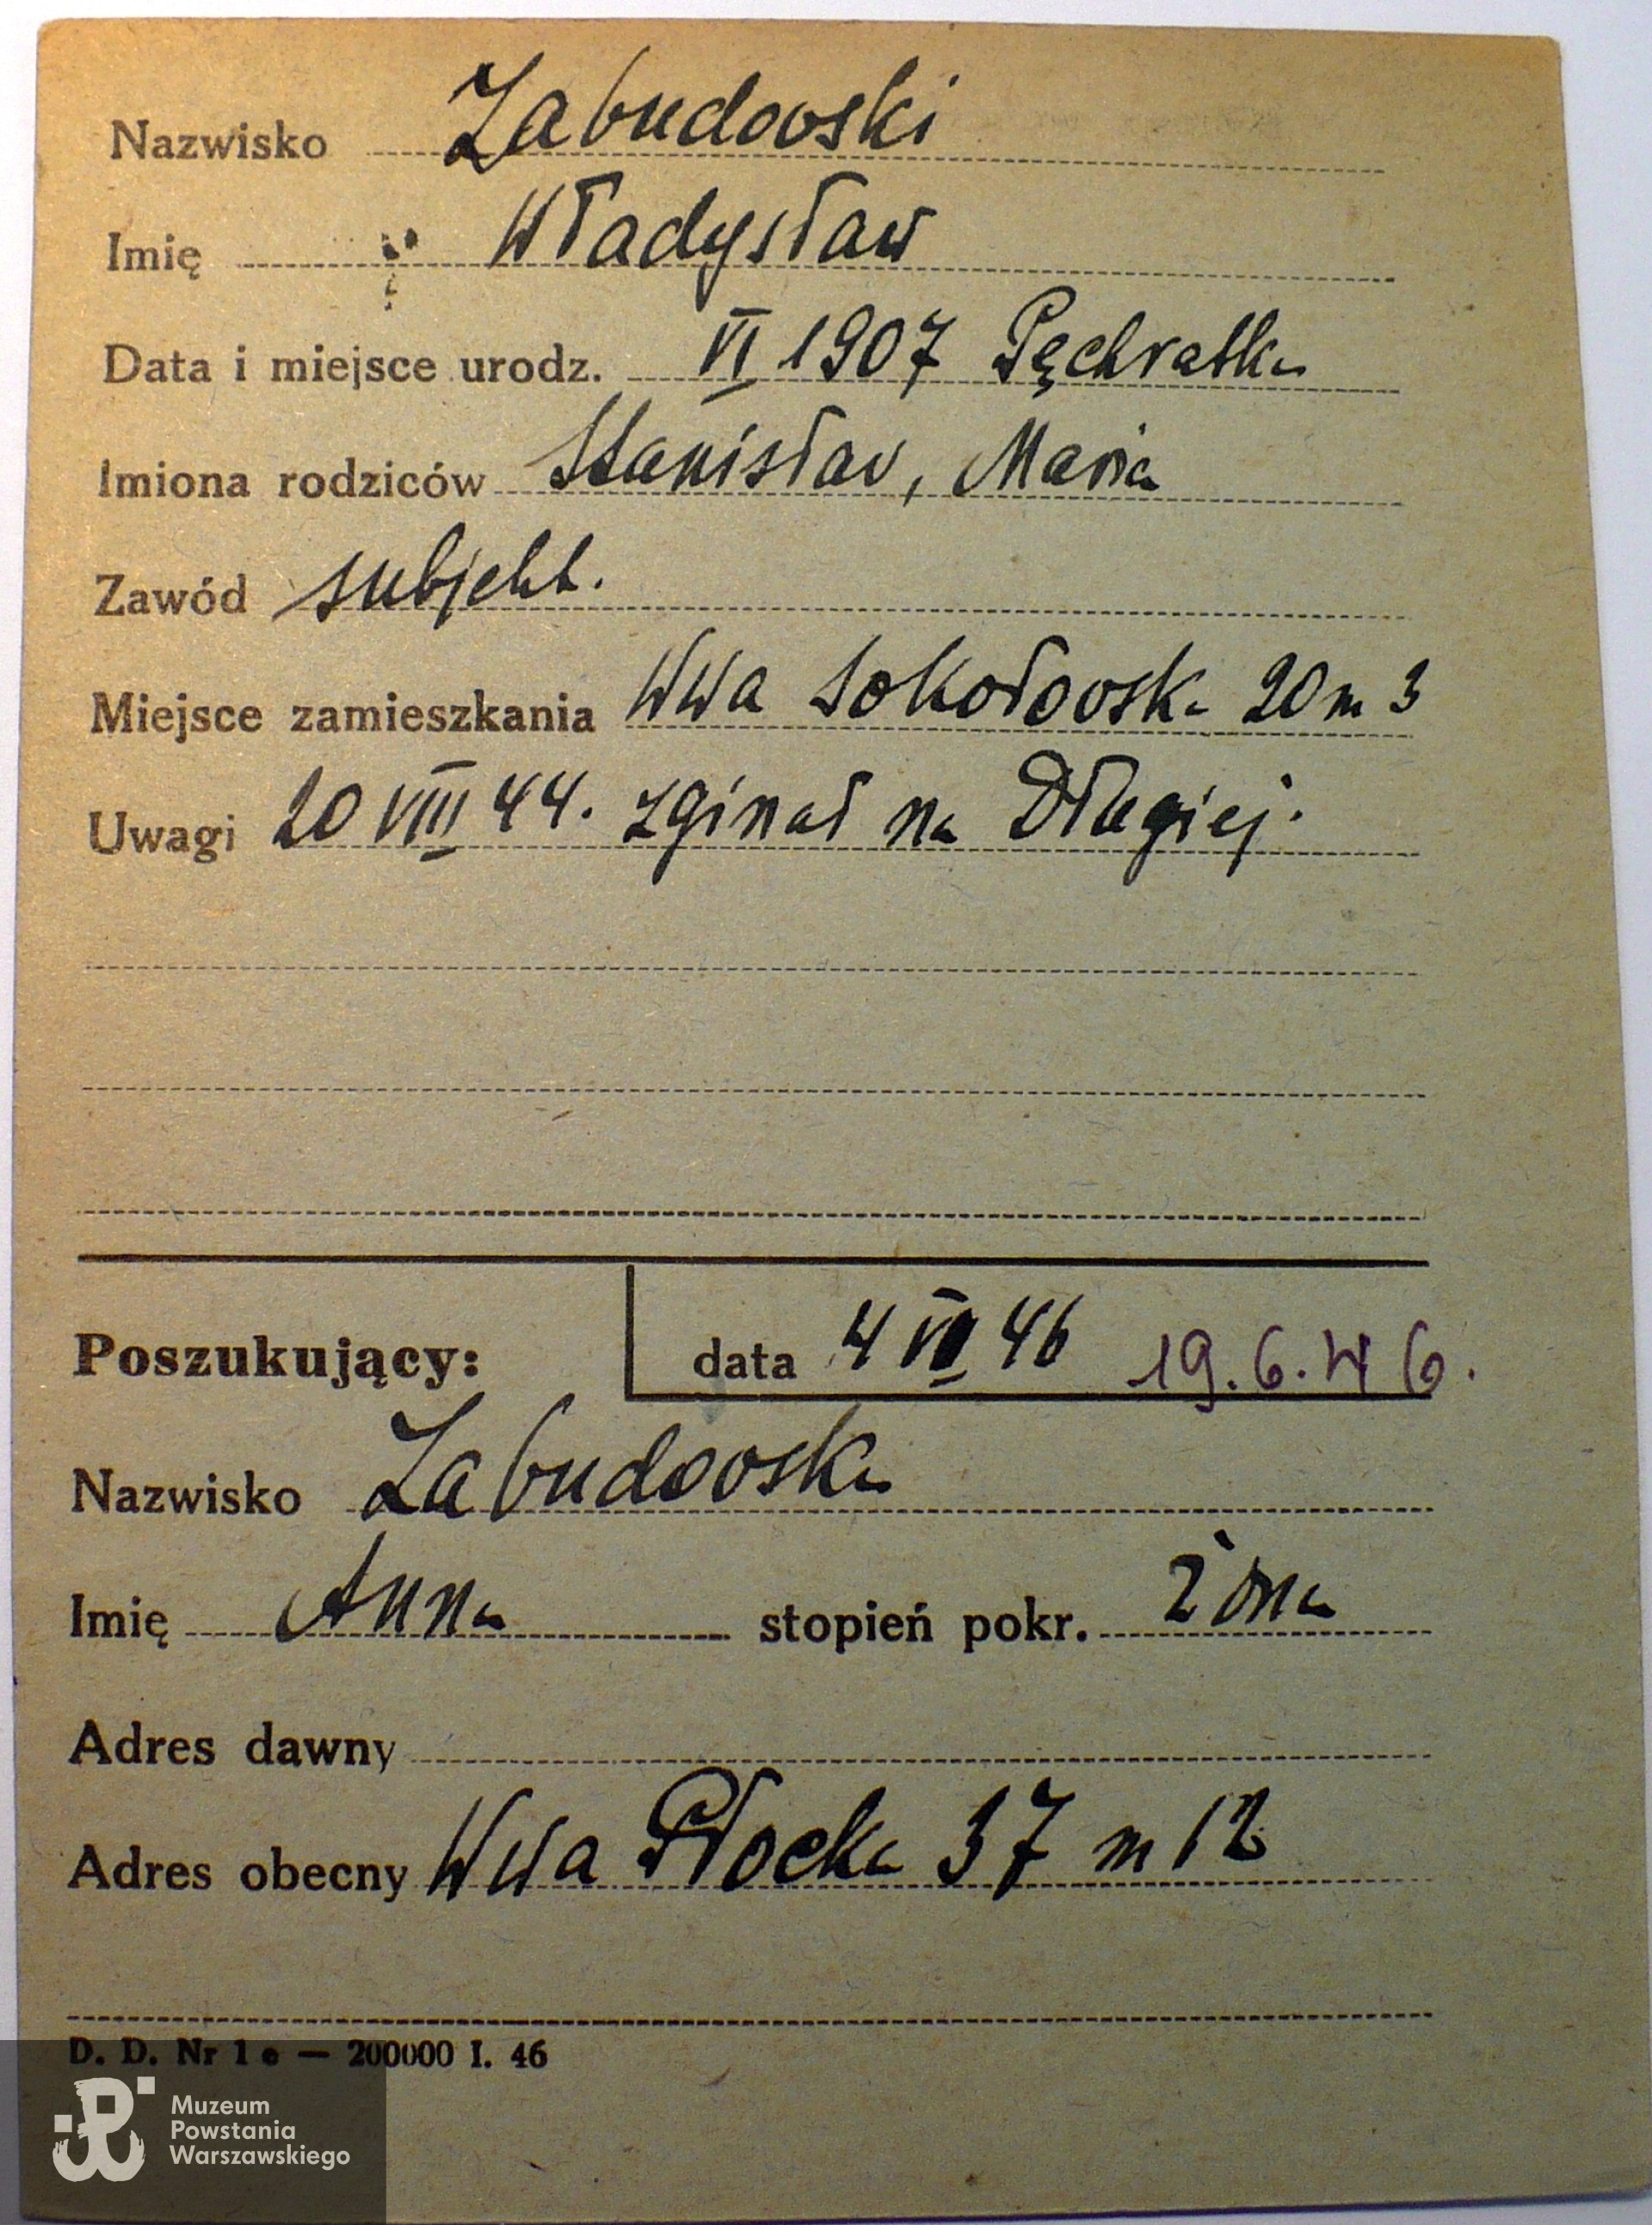 Nazwisko Zabudowski
Imię Władysław
Data i miejsce urodz. VI 1907 Pęchratka
Imiona rodziców Stanisław, Maria
Zawód subjekt.
Miejsce zamieszkania Wwa Sokołowska 20 m 3
Uwagi 20 VIII 44. zginał na Długiej.
Poszukujący: data 4 VI 46 19.6.46.
Nazwisko Zabudowska
Imię Anna stopień pokr. żona
Adres dawny
Adres obecny Wwa Płocka 37 m 12
D. D. Nr 1 e — 200000 I. 46
Muzeum
Powstania
Warszawskiego